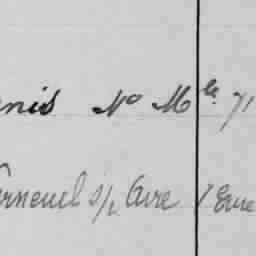 nis No Mle 71
erneuil s/ Avre / Eure